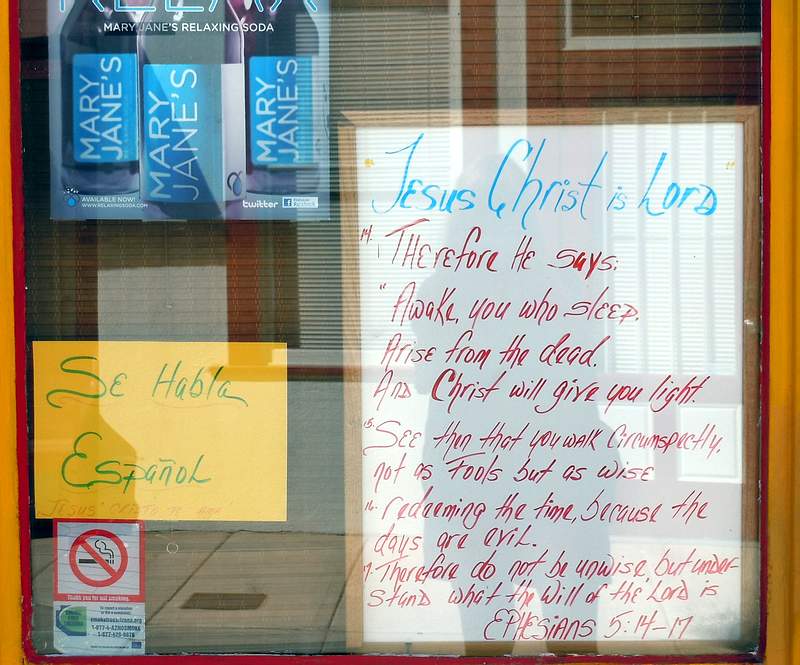 RELAX
MARY JANE'S RELAXING SODA
MARY
JANE'S
MARY
JANE'S
MARY
JANE'S
AVAILABLE NOW!
WWW.RELAXINGSODA.COM
twitter
Se Habla
Español
Thank you for not smoking.
"Jesus Christ is Lord"
14. THerefore He says:
"Awake, you who sleep.
Arise from the dead.
And Christ will give you light.
15. See then that you walk circumspectly,
not as Fools but as wise
16. redeeming the time, because the
days are evil.
17. Therefore do not be unwise, but under-
stand what the will of the Lord is
EPHesians 5:14-17